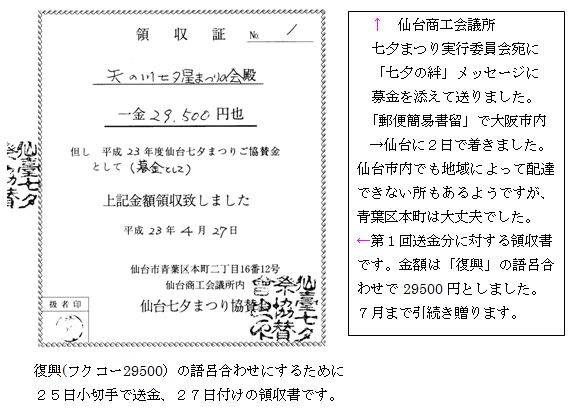 領収証 No. 1
天の川七夕星まつりの会殿
一金29,500円也
但し 平成23年度仙台七夕まつりご協賛金
として(募金として)
上記金額領収致しました
平成23年4月27日
仙台市青葉区本町二丁目16番12号
仙台商工会議所内
仙台七夕まつり協賛会
扱者印
仙臺七夕
祭協賛
仙臺七夕
祭協賛
會之印
↑ 仙台商工会議所
七夕まつり実行委員会宛に
「七夕の絆」メッセージに
募金を添えて送りました。
「郵便簡易書留」で大阪市内
→仙台に2日で着きました。
仙台市内でも地域によって配達
できない所もあるようですが、
青葉区本町は大丈夫でした。
←第1回送金分に対する領収書
です。金額は「復興」の語呂合
わせで29500円としました。
7月まで引続き贈ります。
復興(フクコー29500) の語呂合わせにするために
25日小切手で送金、27日付けの領収書です。